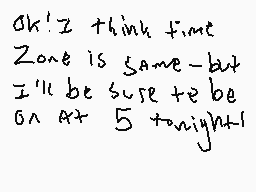 Ok! I think time
Zone is same - but
I'll be sure to be
on At 5 tonight!